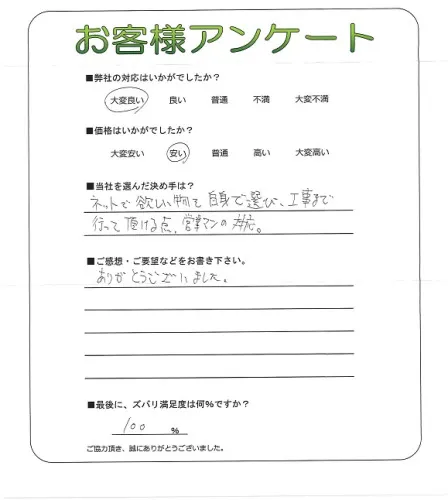 お客様アンケート
■弊社の対応はいかがでしたか？
大変良い 良い 普通 不満 大変不満
■価格はいかがでしたか？
大変安い 安い 普通 高い 大変高い
■当社を選んだ決め手は？
ネットで欲しい物を自身で選び、工事まで
行って頂ける点、営業マンの対応。
■ご感想・ご要望などをお書き下さい。
ありがとうございました。
■最後に、ズバリ満足度は何％ですか？
100 ％
ご協力頂き、誠にありがとうございました。